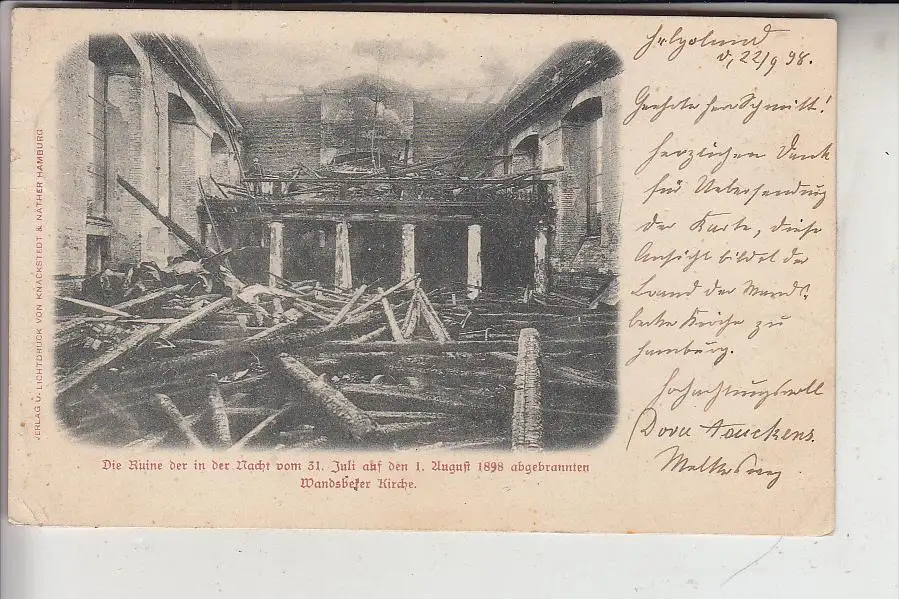 VERLAG U. LICHTDRUCK VON KNACKSTEDT & NÄTHER HAMBURG
Helgoland
d, 22/9 98.
Geehrter Herr Schmitt!
Herzlichen Dank
für Uebersendung
der Karte, diese
Ansicht bildet der
Brand der Wands-
becker Kirche zu
Hamburg.
Hochachtungsvoll
Dora
Die Ruine der in der Nacht vom 31. Juli auf den 1. August 1898 abgebrannten
Wandsbeker Kirche.